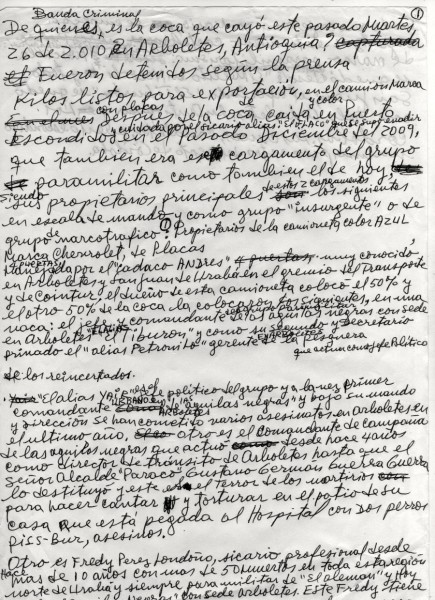 Banda Criminal
①
De quien es, es la coca que cayó este pasado Martes
26 de 2.010 En Arboletes, Antioquia?
Fueron detenidos según la prensa
Kilos listos para exportación, en el camión Marca
con Placas y color
despues de la coca caida en Puerto
y cuidada por el sicario alias: "El FLACO"
Escondido en el Pasado Diciembre del 2009,
que tambien era cargamento del grupo
paramilitar como tambien el de hoy
siendo de estos 2 cargamentos
sus propietarios principales los siguientes
en escala de mando y como grupo "insurgente" o de
grupo de narcotrafico? Propietarios de la camioneta color AZUL
Marca Chevrolet, de Placas
manejada por el "cadaco ANDRES" muy conocido
en Arboletes y San Juan de Urabá en el gremio del Transporte
y de Cointur: el dueño de esta camioneta colocó el 50% y
el otro 50% de la coca la colocaron los siguientes, en una
vaca: el comandante de las aguilas negras con sede
en Arboletes "El Tiburon" y como su segundo y secretario
primado el "alias Petronilo" gerente de la pesquera
que actua como jefe Politico
de los reincertados.
"El alias YAI" es el jefe politico del grupo y a la vez primer
comandante URBANO en las "aguilas negras" y bajo su mando
y dirección se han cometido varios asesinatos en Arboletes en
el ultimo año, otro es el comandante de campaña
de las aguilas negras que actuó desde hace 4 años
como director de tránsito de Arboletes hasta que el
Señor Alcalde "Paraco" Gustavo German Guerra Guerra
lo destituyó y este es el Terror de los martirios
para hacer cantar y torturar en el patio de su
casa que está pegada al Hospital con Dos perros
Piss-Bur, asesinos.
Otro es Fredy Perez Londoño, sicario profesional desde
hace mas de 10 años con mas de 50 muertos en toda esta región
norte de Urabá y siempre paramilitar de "El aleman" y Hoy
con sede Arboletes. Este Fredy tiene